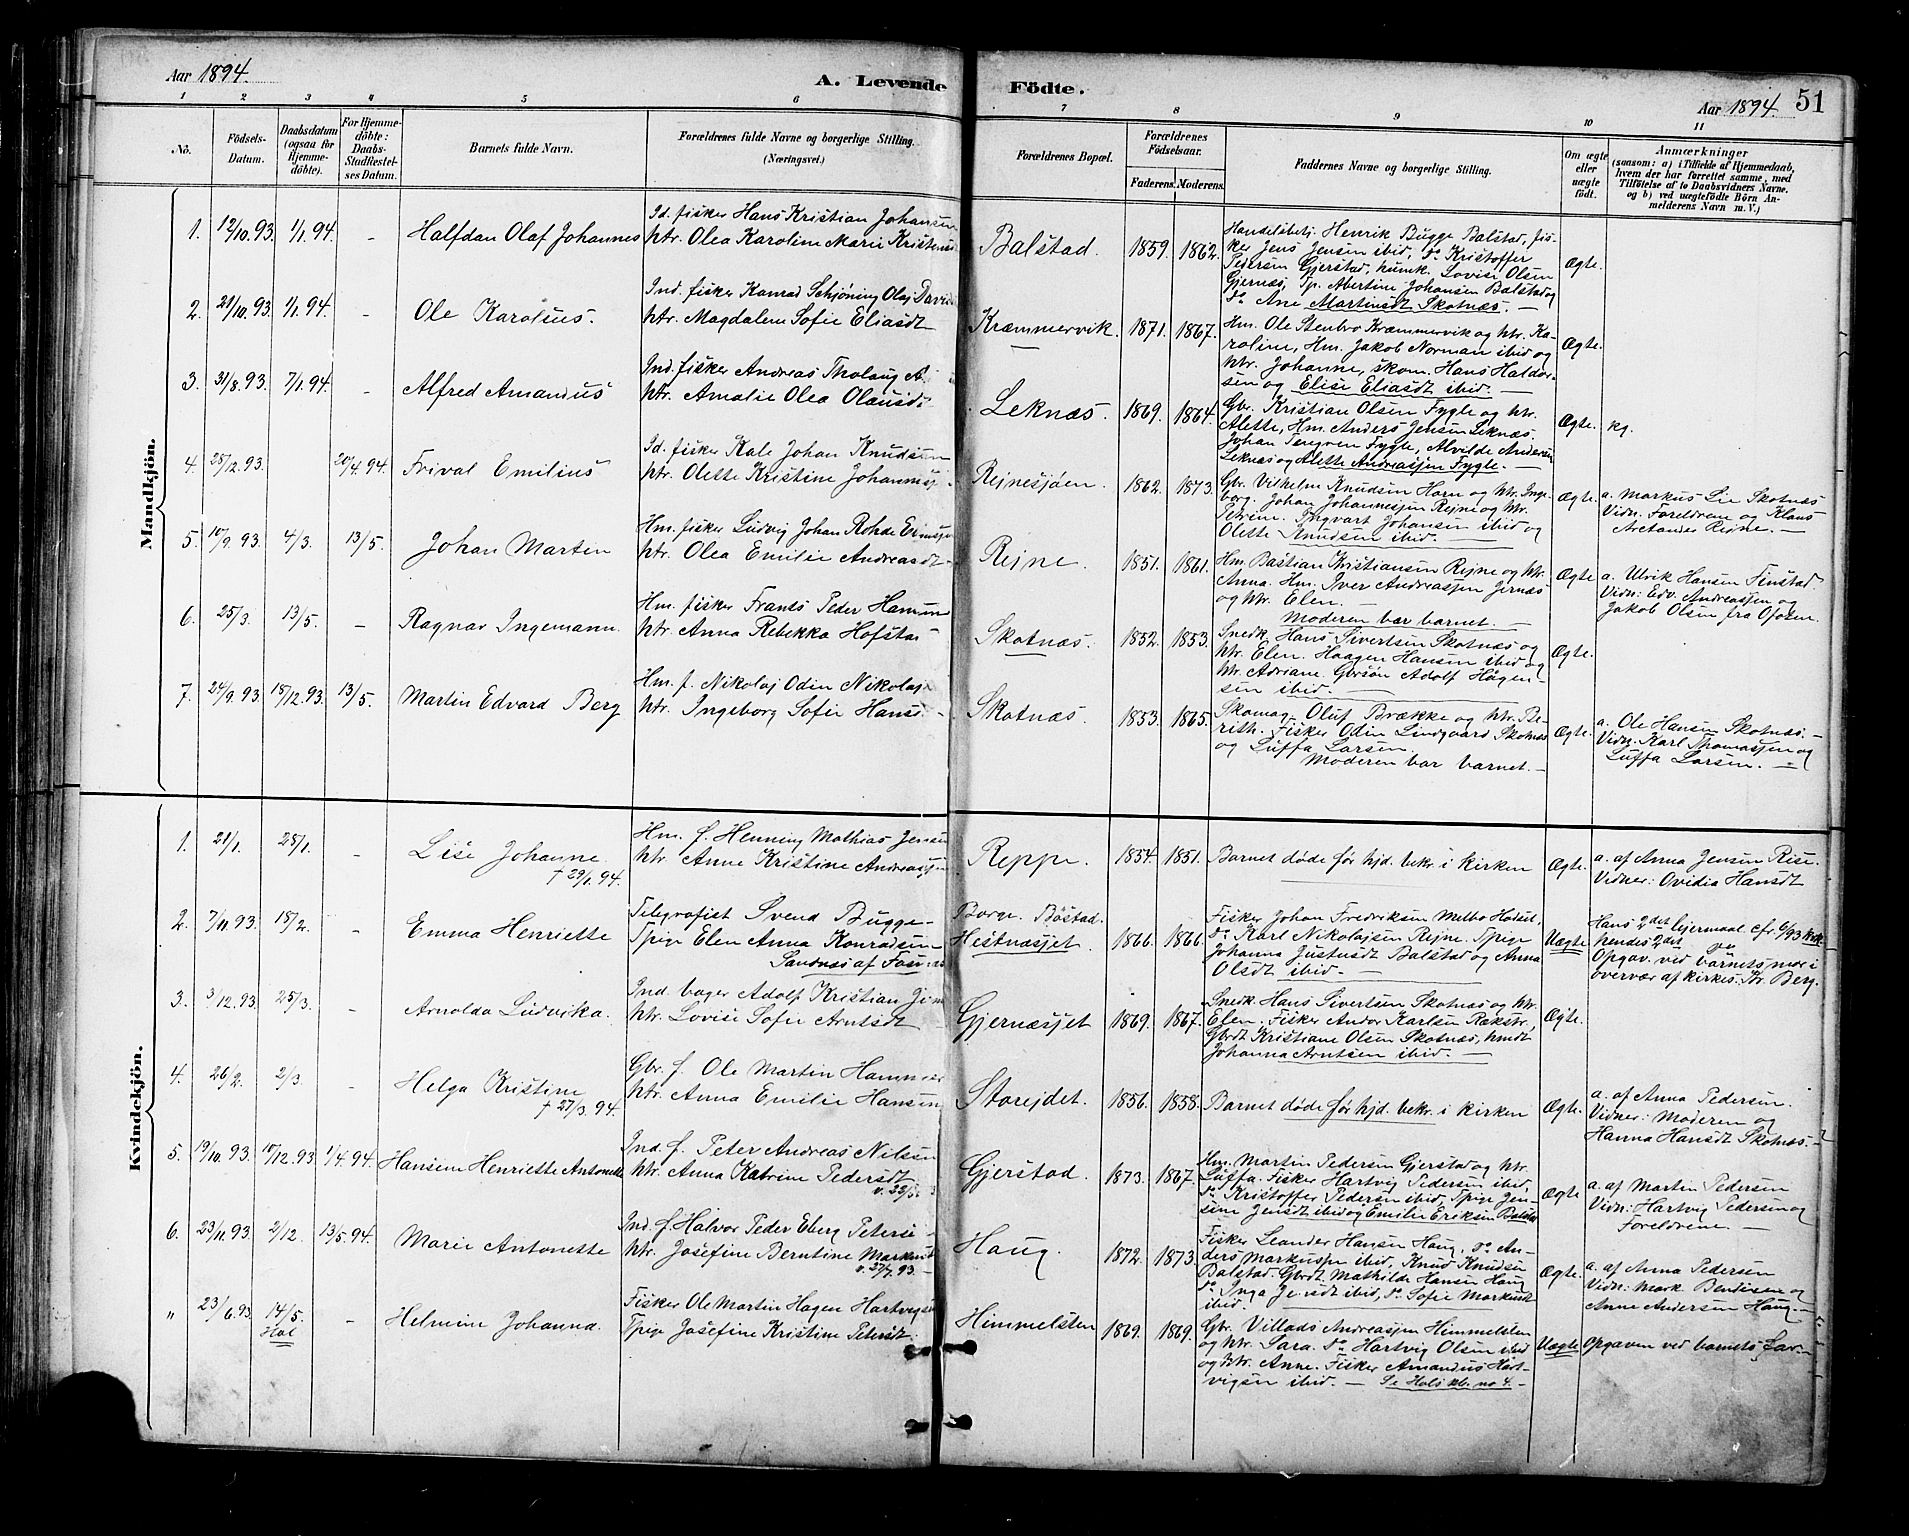 Aar 1894. A. Levende Födte. Aar 1894. 51
1 2 3 4 5 6 7 8 9 10 11
Nô. Födsels-Datum. Daabsdatum (ogsaa for Hjemmedöbte). For Hjemmedöbte: Daabs-Stadfæstelses Datum. Barnets fulde Navn. Forældrenes fulde Navne og borgerlige Stilling. (Næringsvei.)
Forældrenes Bopæl. Forældrenes Födselsaar. Faderens. Moderens. Faddernes Navne og borgerlige Stilling. Om ægte eller uægte födt. Anmærkninger
(saasom: a) i Tilfælde af Hjemmedaab,
hvem der har forrettet samme, med
Tilföielse af to Daabsvidners Navne,
og b) ved uægtefödte Börn Anmelderens Navn m.V.)
Mandkjön.
1. 12/10.93. 1/1.94. - Halfdan Olaf Johannes
Id. fisker Hans Kristian Johansen
htr. Olea Karoline Marie Kristens
Balstad. 1859. 1862.
Handelsbetj. Henrik Bugge Balstad, fis-
ker Jens Jensen ibid, do Kristoffer
Pedersen Gjerstad, humk. Lovise Olsen
Gjernæs, Sp. Abertine Johansen Balstad og
do Ane Martinsdt Skotnæs. —
Ægte.
2. 21/10.93. 1/1.94. - Ole Karolius.
Ind. fisker Konrad Schjöning Olaj David
htr. Magdalena Sofie Eliasdt
Kræmmervik. 1871. 1867.
Hm. Ole Stenbro Kræmmervik og htr. Ka-
roline, Hm. Jakob Norman ibid og
htr. Johanne, skom. Hans Haldor-
sen og Elise Eliasdt ibid. —
Ægte.
3. 31/8.93. 7/1.94. - Alfred Amandus
Ind. fisker Andreas Tholaug A
htr. Amalie Olea Olausdt
Leknæs. 1869. 1864.
Gbr. Kristian Olsen Fygle og htr.
Alette, Hm. Anders Jensen Leknæs.
Johan Fygle, Alvilde Andersen
Leknæs og Alette Andreassen Fygle. —
Ægte. kg.
4. 25/12.93. 20/4.94. Frival Emilius
Id. fisker Kale Johan Knudsen
htr. Olette Kristine Johannes
Rejnesjøen. 1862. 1873.
Gbr. Vilhelm Knudsen Horn og htr. Inge-
borg. Johan Johannesjen Rejne og htr.
Petrine. Ingvart Johansen ibid og
Olette Knudsen ibid. —
Ægte. a. Markus Lie Skotnæs
Vidn. Foreldrene og Klaus
Rejne. —
5. 10/9.93. 4/3. 13/5. Johan Martin
Hm. fisker Ludvig Johan Rohde
htr. Olea Emilie Andreasdt
Rejne. 1851. 1861.
Hm. Bastian Kristiansen Rejne og htr.
Anna. Hm. Iver Andreassen
og htr. Elen. —
Moderen bar barnet. —
Ægte a. Ulrik Hansen Finstad.
Vidn: Edv. Andreassen og
Jakob Olsen fra Ofoten.
6. 25/3. 13/5. - Ragnar Ingemann.
Hm. fisker Frants Peder
htr. Anna Rebekka Hofsta
Skotnæs. 1852. 1853.
Snedk. Hans Sivertsen Skotnæs og
htr. Elen. Haagen Hansen ibid og
htr. Adriane. Gbrsön Adolf Hagen-
sen ibid. —
Ægte.
7. 24/9.93. 18/12.93. 13/5. Martin Edvard Berg
Hm. f. Nikolaj Odin Nikolaj
htr. Ingeborg Sofie Hans
Skotnæs. 1853. 1865.
Skomag. Oluf Brække og htr. Be-
rith. Fisker Odin Lindgaard Skotnæs
og Luffa Larsen.
Moderen bar barnet. —
Ægte. a. Ole Hansen Skotnæs. —
Vidn. Karl Thomassen og
Luffa Larsen. —
Kvindekjön.
1. 21/1. 25/1. - Lise Johanne.
† 29/1.94.
Hm. f. Henning Mathias Jensen
htr. Anne Kristine Andreassen
Reppe. 1854. 1851. Barnet døde før hjd. bekr. i kirken
Ægte. a. af Anna Jensen Rise.
Vidner: Ovidia Hansdt
2. 7/11.93. 18/2. - Emma Henriette
Telegrafist Svend Bugge
Spige Elen Anna Konradsen
Sandnæs af
Borge. Böstad.
Hestnæsjet. 1866. 1866.
Fisker Johan Fredriksen Melbo Hadsel,
do Karl Nikolajsen Rejne. Spige
Johanna Justusdt Balstad og Anna
Olsdt ibid. —
Uægte Hans 2det lejermaal cfr. 6/93
hendes 2det do
Opgav. ved barnets mor i
overvær af kirkes. Berg.
3. 3/12.93. 25/3. - Arnolda Ludvika.
Ind. bager Adolf Kristian
htr. Lovise Sofie Arntsdt
Gjernæsjet 1869. 1867.
Snedk. Hans Sivertsen Skotnæs og htr.
Elen. Fisker Andor Karlsen Rækstr,
Gbrdt Kristiane Olsen Skotnæs, hmdt
Johanna Arntsen ibid. —
Ægte.
4. 26/2. 2/3. - Helga Kristine
† 27/3.94.
Gbr. f. Ole Martin
htr. Anna Emilie Hansen
Storejdet. 1856. 1858. Barnet døde før hjd. bekr. i kirken
Ægte. a. af Anna Pedersen.
Vidner: Moderen og
Hanna Hansdt Skotnæs. —
5. 19/10.93. 17/12.93. 1/4.94. Hansine Henriette Antonette
Ind. f. Peter Andreas Nilsen
htr. Anna Katrine Pedersdt.
Gjerstad. 1873. 1867.
Hm. Martin Pedersen Gjerstad og htr.
Luffa. Fisker Hartvig Pedersen ibid.
do Kristoffer Pedersen ibid, Spige Jen-
sine Jensdt ibid og Emilie Eriksen Balstad
Ægte a. af Martin Pedersen
Vidn: Hartvig Pedersen og
Foreldrene. —
6. 23/11.93. 2/12. 13/5.94. Marie Antonette
Ind. f. Halvor Peder Eberg Peterse
htr. Josefine Berntine
v. 27/7.93. —
Haug. 1872. 1873.
Fisker Leander Hansen Haug, do An-
ders Markussen ibid, Knud Knudsen
Balstad. Gbrdt. Mathilde Hansen Haug
do Inga Jensdt ibid, do Sofie Markusdt
ibid.
Ægte. a. af Anna Pedersen
Vidn: Mark Bendiksen og
Anne Andersen Haug. —
" 23/6.93 14/5.
Hol - Helmine Johanna.
Fisker Ole Martin Hagen Hartvigs
Spige Josefine Kristine Petersdt.
Himmelsten 1869. 1869.
Gbr. Villads Andreassen Himmelsten
og htr. Sara. do Hartvig Olsen ibid
og htr. Anne. Fisker Amandus Hart-
vigsen ibid. — Se Hols kb. no 4. —
Uægte Opgaven ved barnets far —